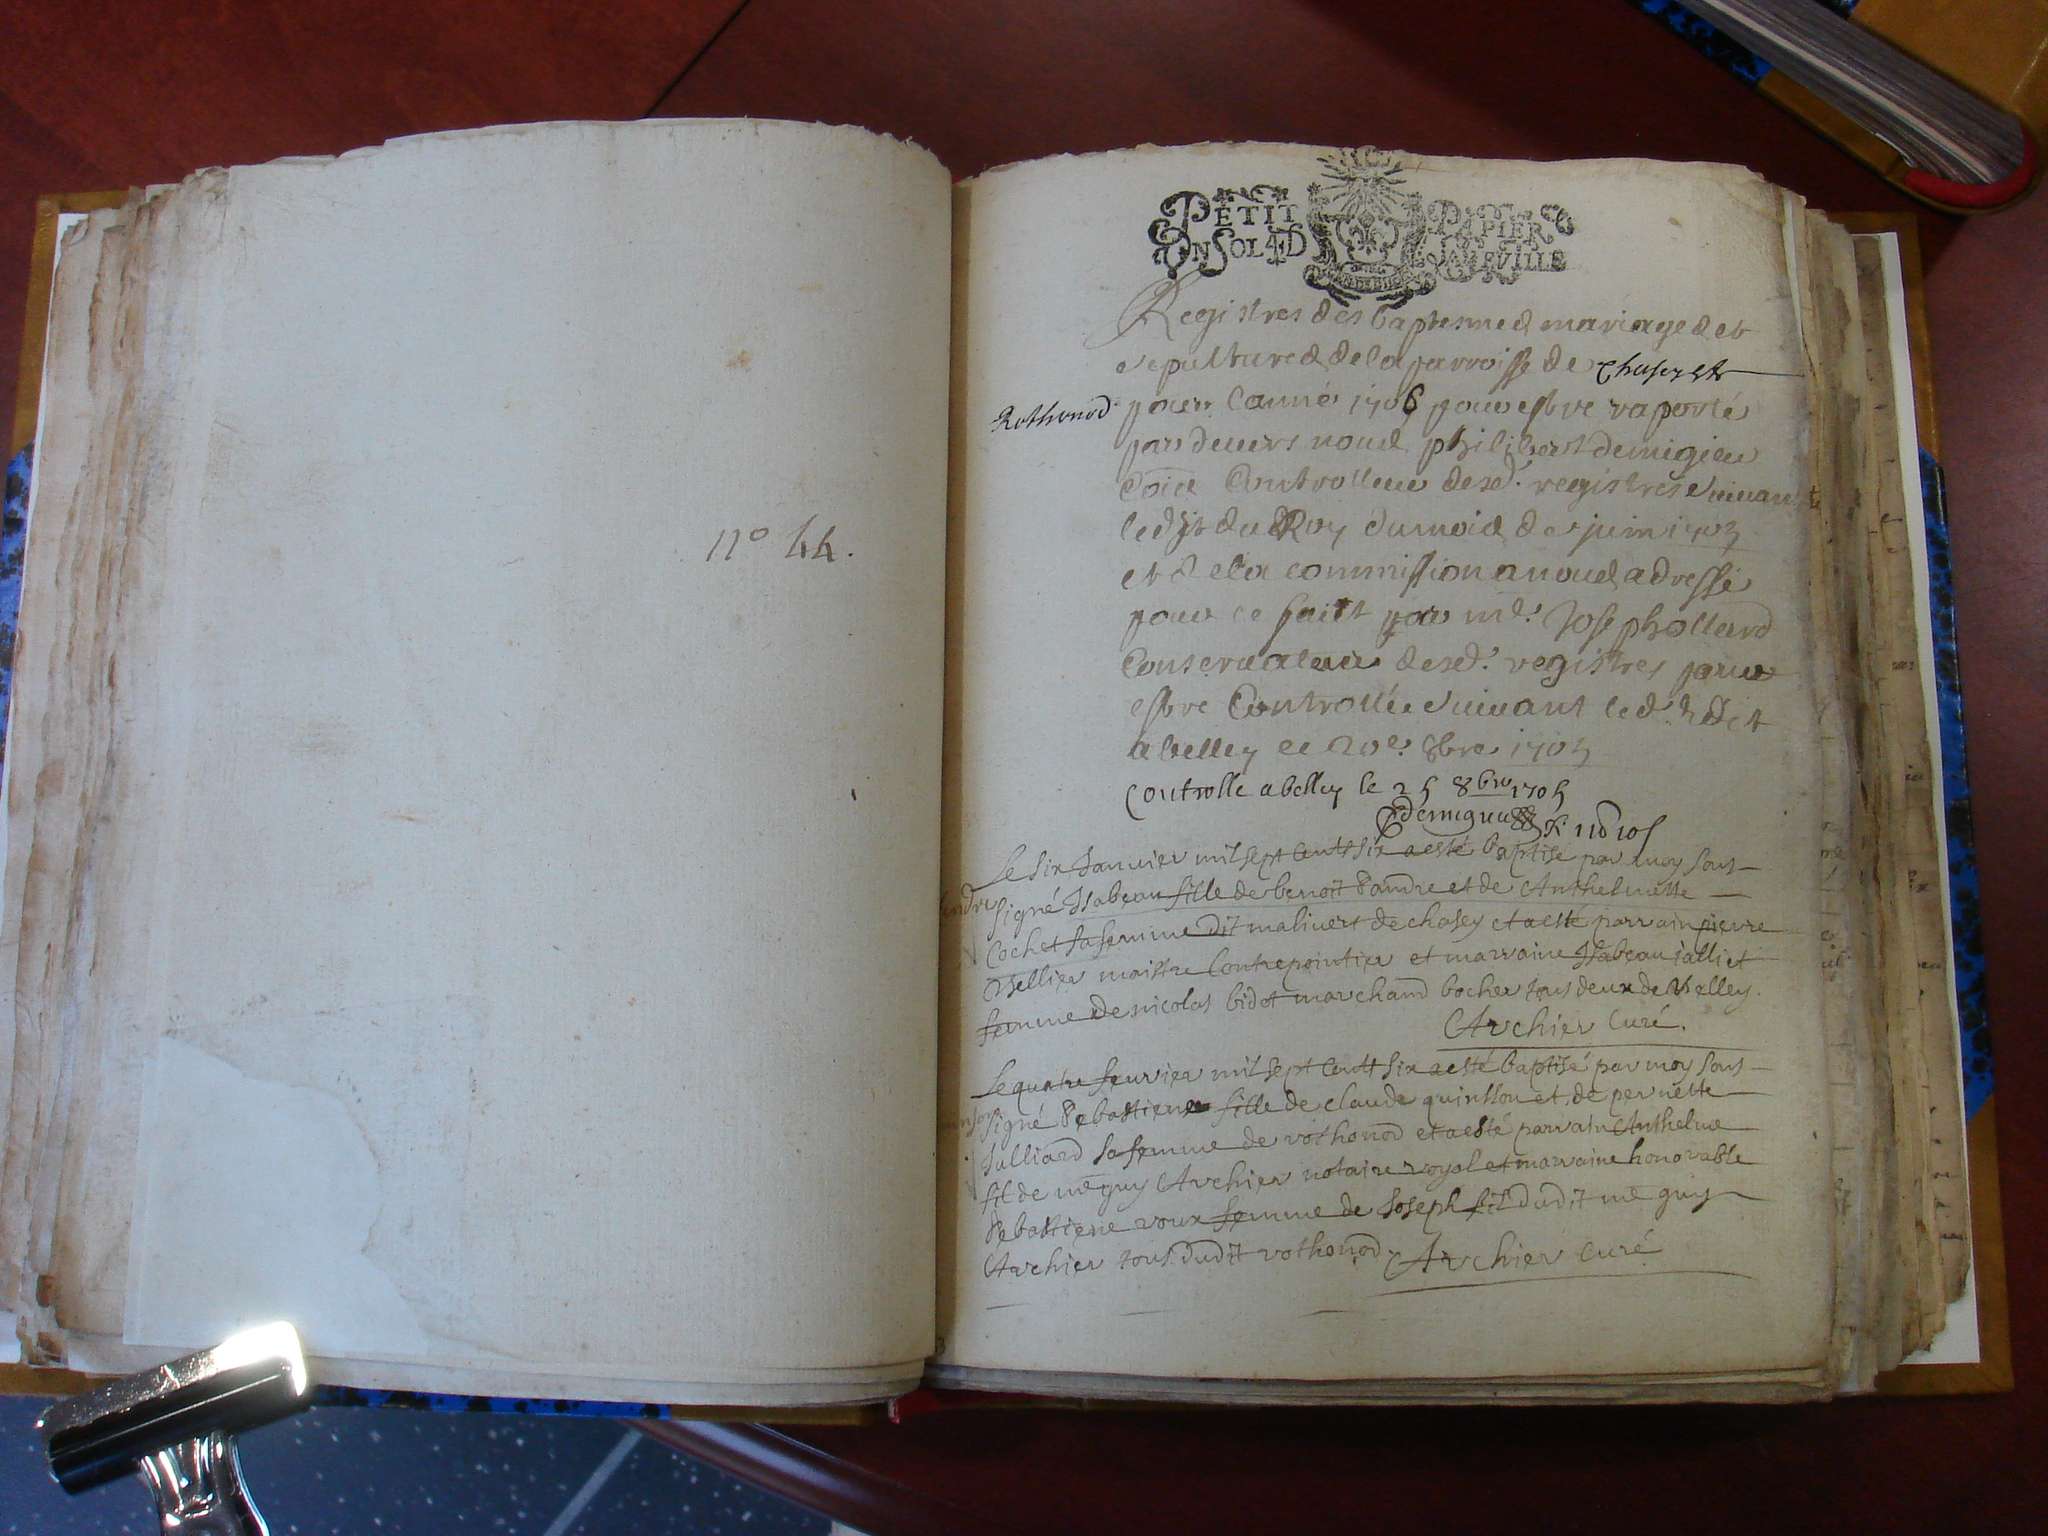 n° 44.
PETIT PAPIER
UN SOL 4 D LA FEUILLE
Registres des baptesmes mariages et
sepultures de la parroisse de Chasey et
Rothonod
pour l'année 1706 pour estre raporté
par devers nous philibert demigieu
Controlleur desd. registres suivant
ledit du Roy du mois de juin 1705
et de la commission a nous adressé
pour ce fait par me. Joseph ollard
Conservateur desd. registres pour
estre Controllée suivant led. Edit
a belley ce 20e. 8bre 1705
Controlle a belley le 25 8bre 1705
Demigieu
Le six Janvier mil sept cent six a esté baptisé par moy sous-
signé Isabeau fille de benoit Pandre et de Anthelmette
Cochet sa femme dit malivert de chasey et a esté parrain pierre
Vellier maistre Contrepointier et marraine Isabeau jalliet
femme de nicolas bidot marchand bocher tous deux de Belley.
Archier Curé.
Le quatre fevrier mil sept cent six a esté baptisé par moy sous-
signé Sebastiene fille de claude quinson et de pernette
Julliard sa femme de rothonod et a esté parrain Anthelme
fil de me guy Archier notaire royal et marraine honorable
Sebastiene roux femme de Joseph fil dudit me guy
Archier tous dudit rothonod Archier Curé